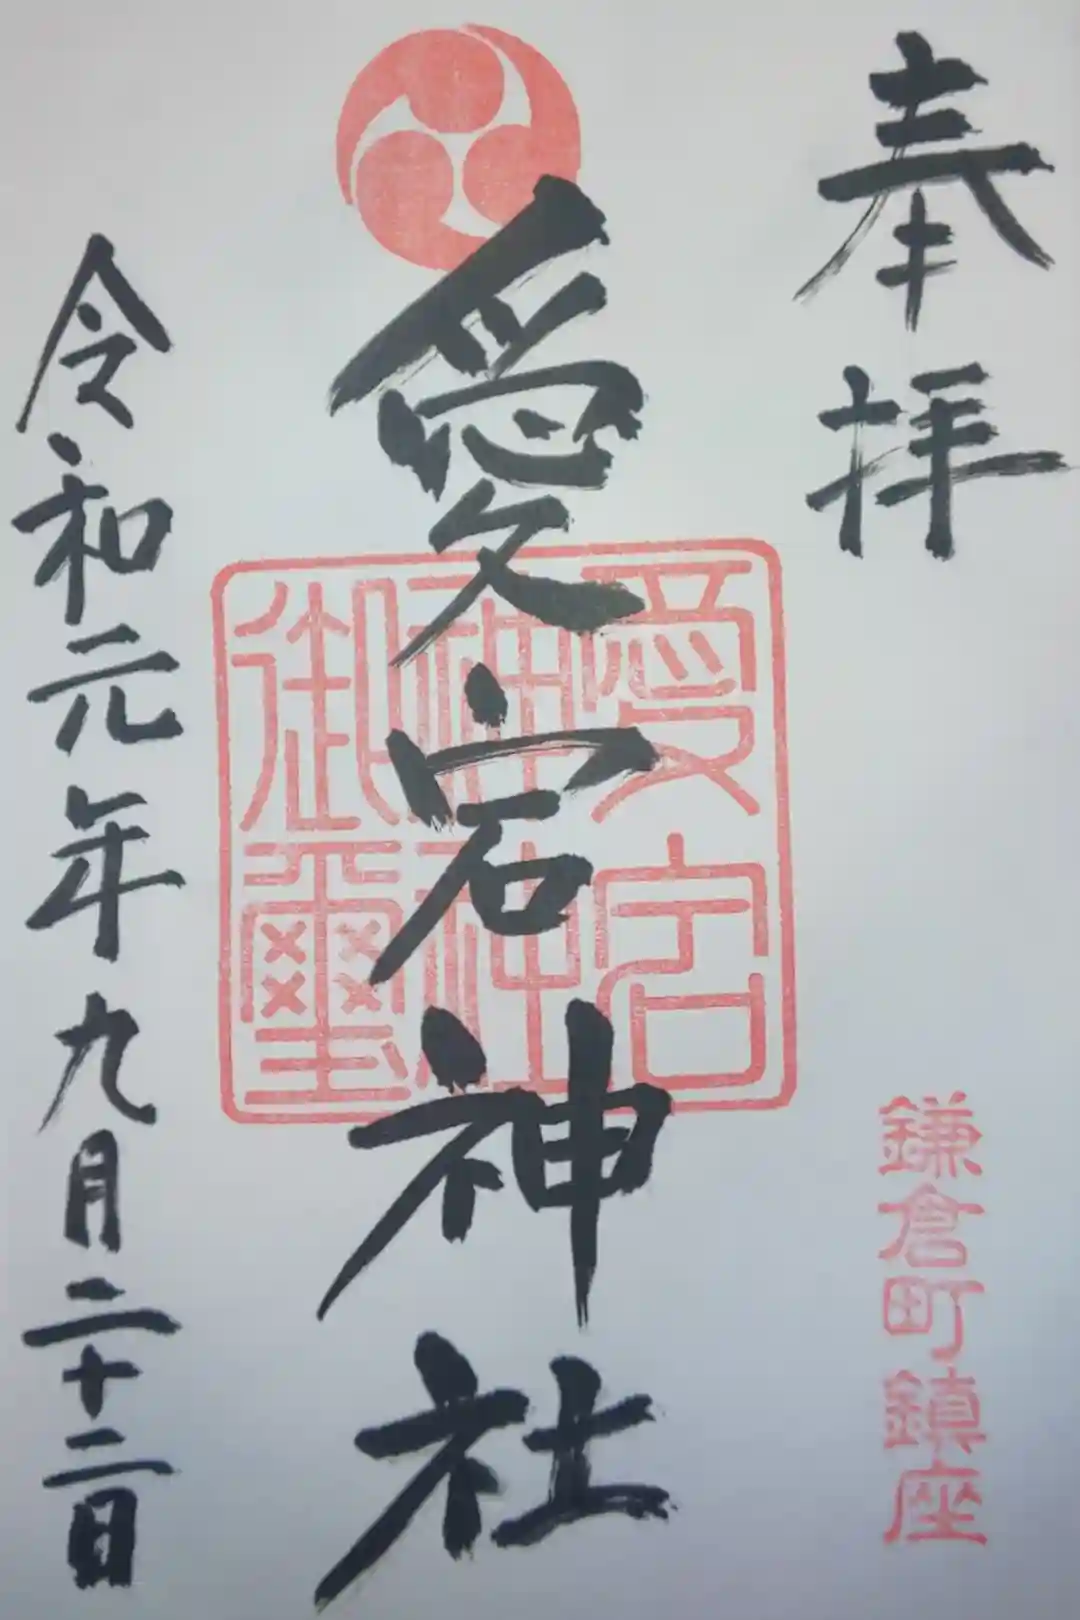 奉拝
鎌倉町鎮座
愛宕神社
愛宕
神社
御璽
令和元年九月二十二日